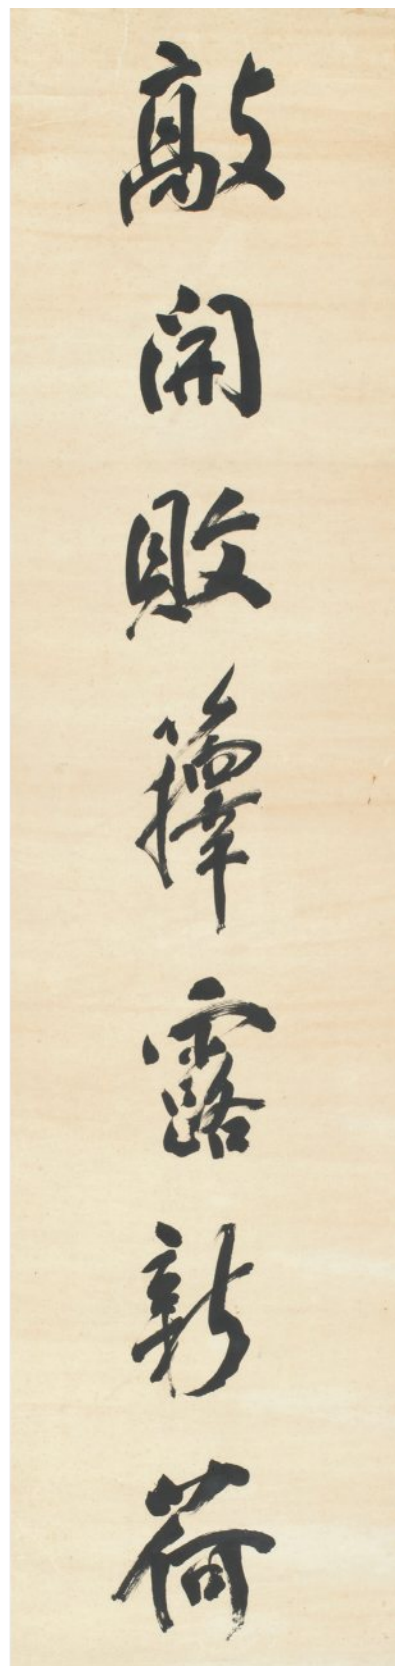 敲開敗籜露新荷